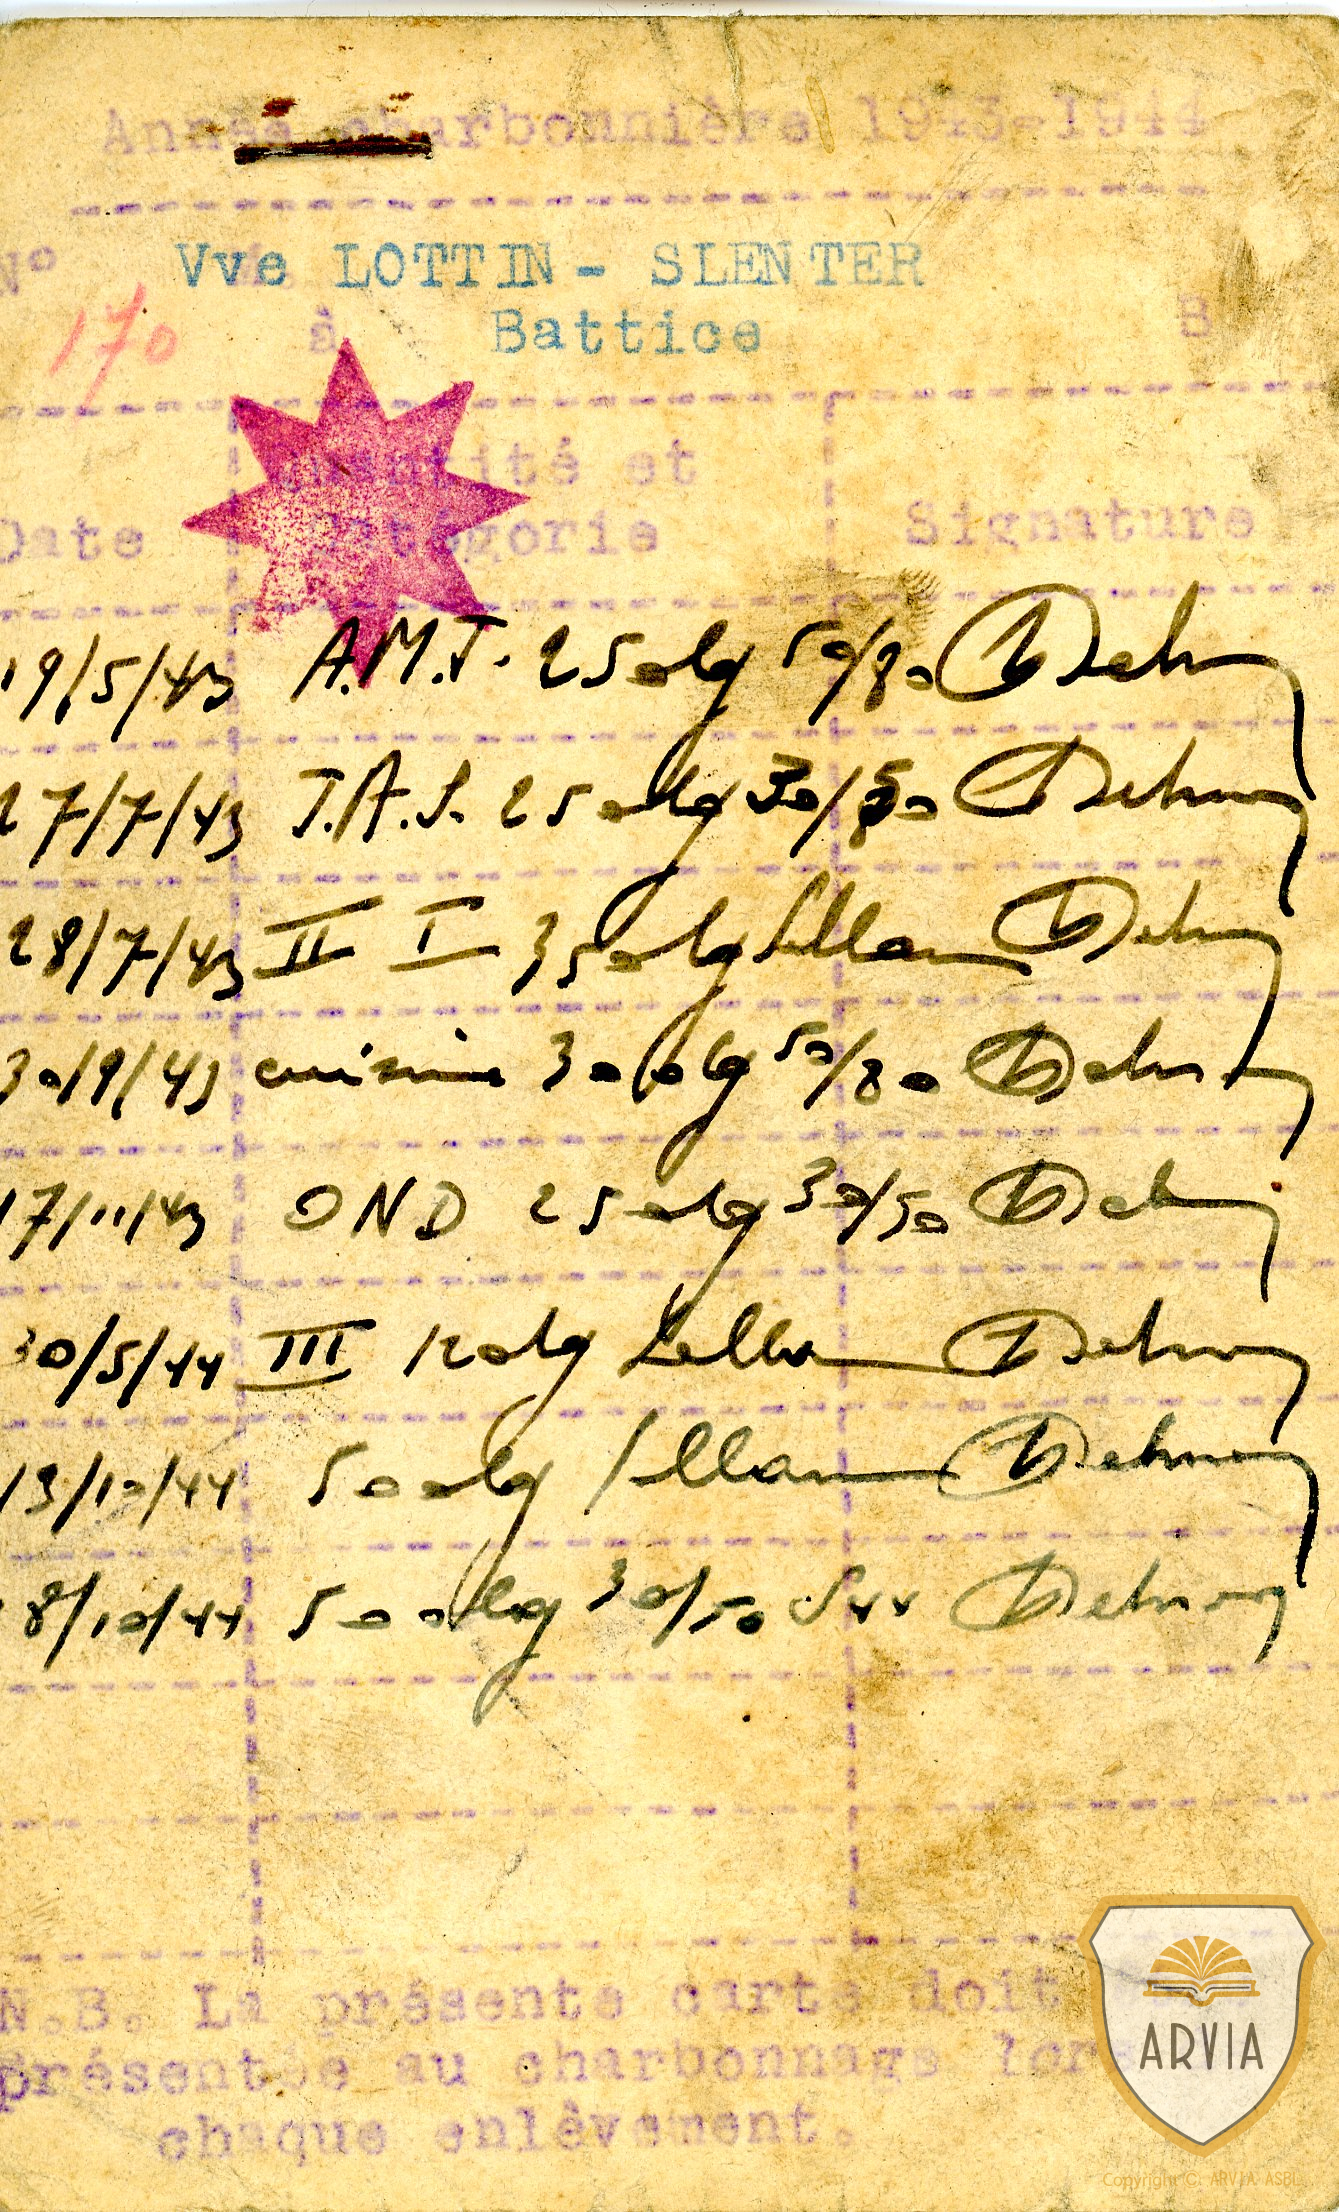 Année charbonnière 1943-1944
N° Vve LOTTIN - SLENTER
170 à Battice B
Quantité et
Date catégorie Signature
19/5/43 A.M.J. 250kg 50/80
27/7/43 J.A.S. 250kg 30/50
28/7/43 II I 350kg
30/9/43 cuisine 300kg 50/80
17/11/43 OND 250kg 30/50
30/5/44 III 120kg
13/10/44 500kg
8/10/44 500kg 30/50
N.B. La présente carte doit
présentée au charbonnage lors
chaque enlèvement.
ARVIA
Copyright © ARVIA ASBL